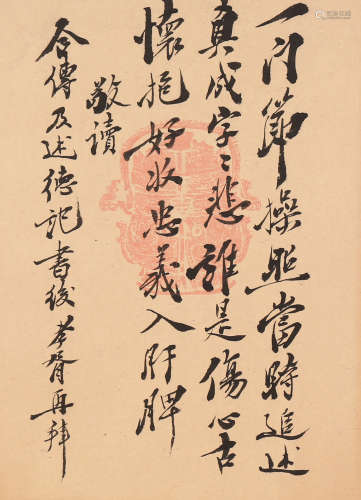 一门節操照當時追述
真成字〻悲誰是傷心古
懷抱好收忠義入肝脾
敬讀
合傳及述德記書後孝胥再拜